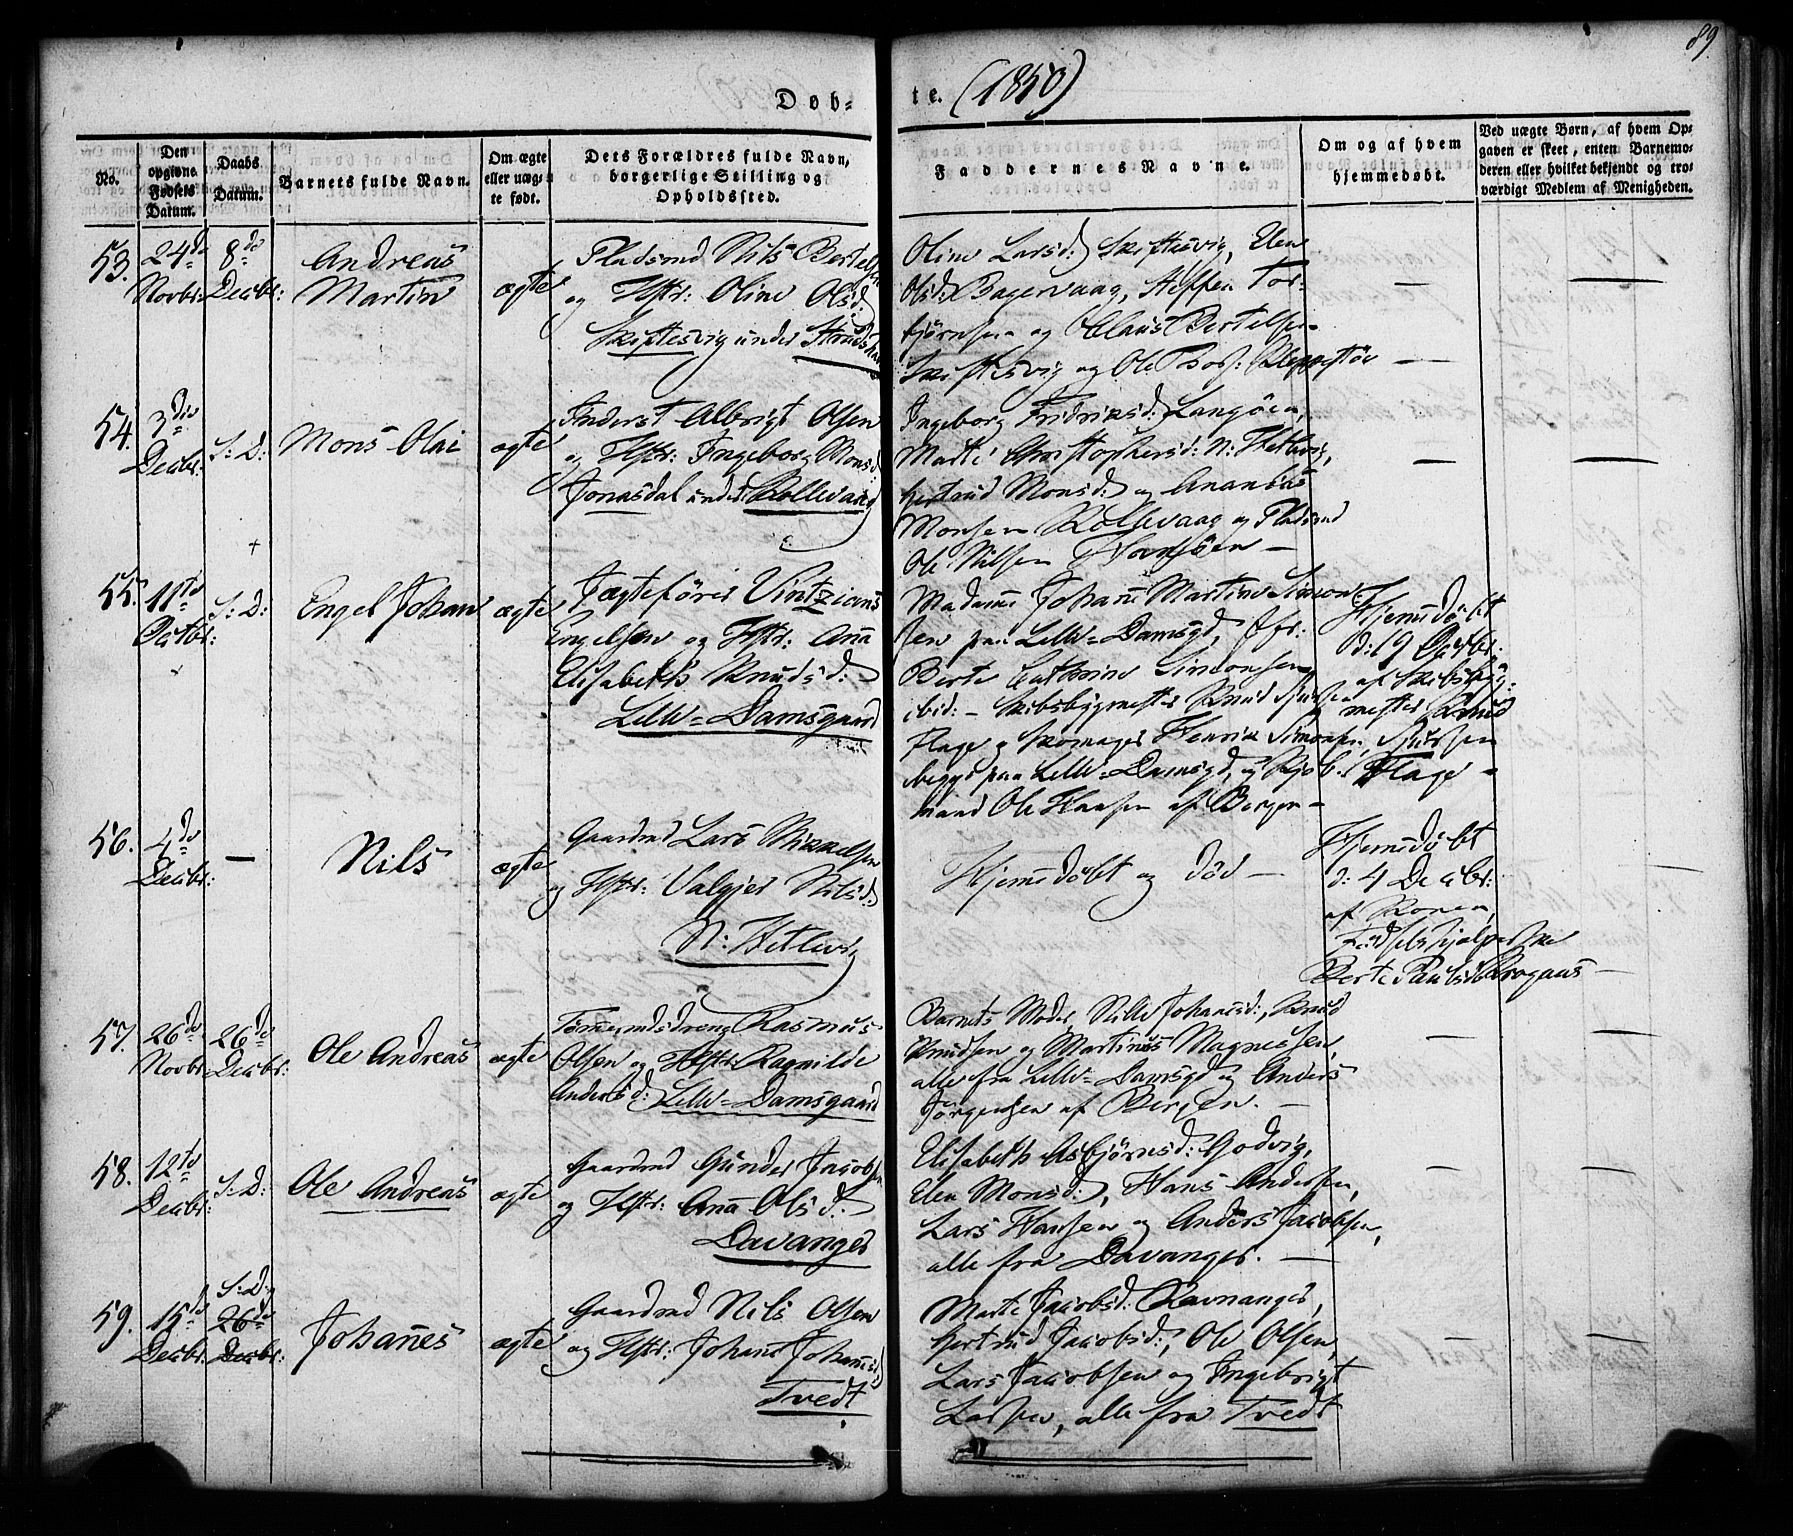 89
Døb-
te. (1850)
No.
Den
opgivne
Fødsels
Datum.
Daabs
Datum.
Barnets fulde Navn.
Om ægte
eller uæg-
te født.
Dets Forældres fulde Navn,
borgerlige Stilling og
Opholdssted.
Faddernes Navne.
Om og af hvem
hjemmedøbt.
Ved uægte Børn, af hvem Op-
gaven er skeet, enten Barnemo-
deren eller hvilket bekjendt og tro-
værdigt Medlem af Menigheden.
53. 24de
Novbr:
8de
Decbr:
Andreas
Martin
ægte
Pladsmd Nils Bertelsen
og Hstr: Oline Olsd:
Skiftesvig under
Oline Larsd: Skiftesvig, Elen
Olsd: Bagervaag, Steffen Tor-
bjørnsen og Claus Bertelsen
Skiftesvig og Ole
—
—
54. 3die
Decbr:
S: D:
Mons Olai
ægte
Inderst Albrigt Olsen
og Hstr: Ingeborg Monsd:
Jonasdal under Rollevaag
Ingeborg Fridriksd: Langøen,
Marte Christophersd: N: Hetlevig,
Gertrud Monsd: og Ananias
Monsen Rollevaag og Pladsmd
Ole Nilsen —
—
—
55. 11te
Octbr:
S: D:
Engel Johan
ægte
Jægtefører Vintzians
Engelsen og Hstr: Anna
Elisabeth Knudsd:
Lille-Damsgaard
Madame Johanne Martine Simon-
sen paa Lille-Damsgd, Jfr:
Berte Cathrine Simonsen
ibid: – Skibsbygmester Knud Sjursen
Flage og Skomager Henrik Simonsen,
begge paa Lille-Damsgd, og Kjøb-
mand Ole Hansen af Bergen –
Hjemmedøbt
d: 19 Octbr:
af Skibsbyg-
mester Knud
Sjursen
Flage –
56. 4de
Decbr:
—
Nils
ægte
Gaardmd Lars Mikkelsen
og Hstr: Valgjer Nilsd:
N: Hetlevig
Hjemmedøbt og død —
Hjemmedøbt
d: 4 Decbr:
af Konen,
Fødselshjælperske
Berte Paulsd: —
57. 26de
Novbr:
26de
Decbr:
Ole Andreas
ægte
Tømmmdsdreng Rasmus
Olsen og Hstr: Ragnilde
Andersd: Lille-Damsgaard
Barnets Moder, Nille Johannesd:, Knud
Knudsen og Martinus Magnessen,
alle fra Lille-Damsgd og Anders
Jørgensen af Bergen. —
—
—
58. 12te
Decbr:
S: D:
Ole Andreas
ægte
Gaardmd Gunder Jacobsen
og Hstr: Anna Olsd:
Davanger
Elisabeth Asbjørnsd: Godvig,
Elen Monsd:, Hans Andersen,
Lars Hansen og Anders Jacobsen,
alle fra Davanger. —
—
—
59. 15de
Decbr:
S: D:
26de
Decbr:
Johannes
ægte
Gaardmd Nils Olsen
og Hstr: Johanne Johannesd:
Tvedt
Marte Jacobsd: Ravnanger,
Gertrud Jacobsd:, Ole Olsen,
Lars Jacobsen og Ingebrigt
Larsen, alle fra Tvedt
—
—